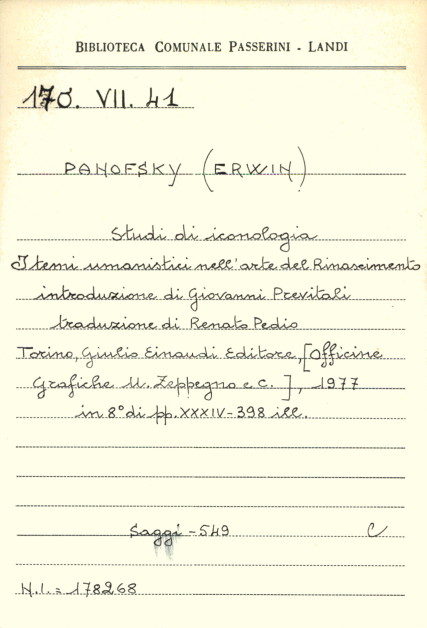 BIBLIOTECA COMUNALE PASSERINI - LANDI
170. VII. 41
PANOFSKY (ERWIN)
Studi di iconologia
I temi umanistici nell'arte del Rinascimento
introduzione di Giovanni Previtali
traduzione di Renato Pedio
Torino, Giulio Einaudi Editore, [Officine
Grafiche U. Zeppegno e C. ], 1977
in 8° di pp. XXXIV-398 ill.
Saggi - 549 C
N.I. = 178268